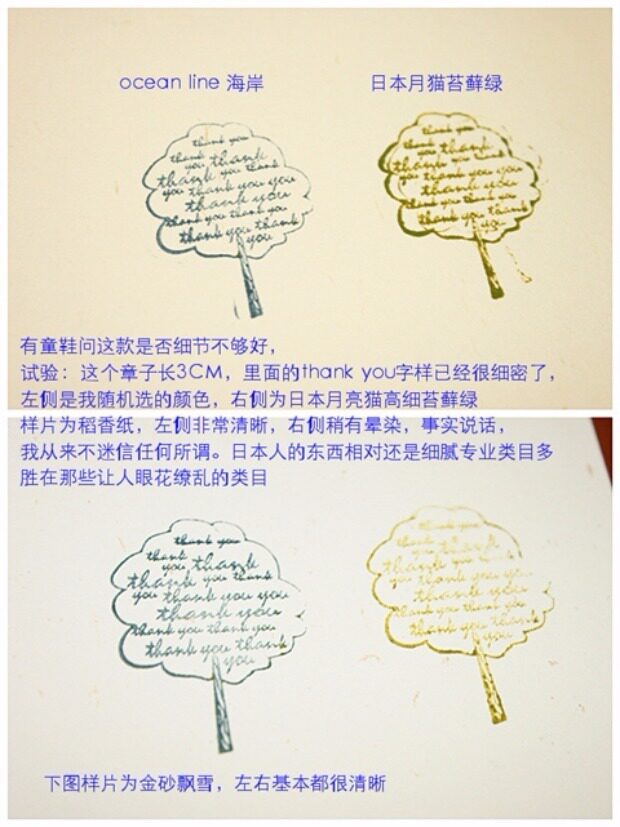 ocean line 海岸
日本月猫苔藓绿
thank you
thank
you thank
thank you thank
you thank you you
thank you
thank you thank you
thank you thank
you
thank you
thank
you thank
thank you thank
you thank you you
thank you
thank you thank you
thank you thank
you
有童鞋问这款是否细节不够好，
试验：这个章子长3CM，里面的thank you字样已经很细密了，
左侧是我随机选的颜色，右侧为日本月亮猫高细苔藓绿
样片为稻香纸，左侧非常清晰，右侧稍有晕染，事实说话，
我从来不迷信任何所谓。日本人的东西相对还是细腻专业类目多
胜在那些让人眼花缭乱的类目
thank you
thank
you thank
thank you thank
you thank you you
thank you
thank you thank you
thank you thank
you
thank you
thank
you thank
thank you thank
you thank you you
thank you
thank you thank you
thank you thank
you
下图样片为金砂飘雪，左右基本都很清晰